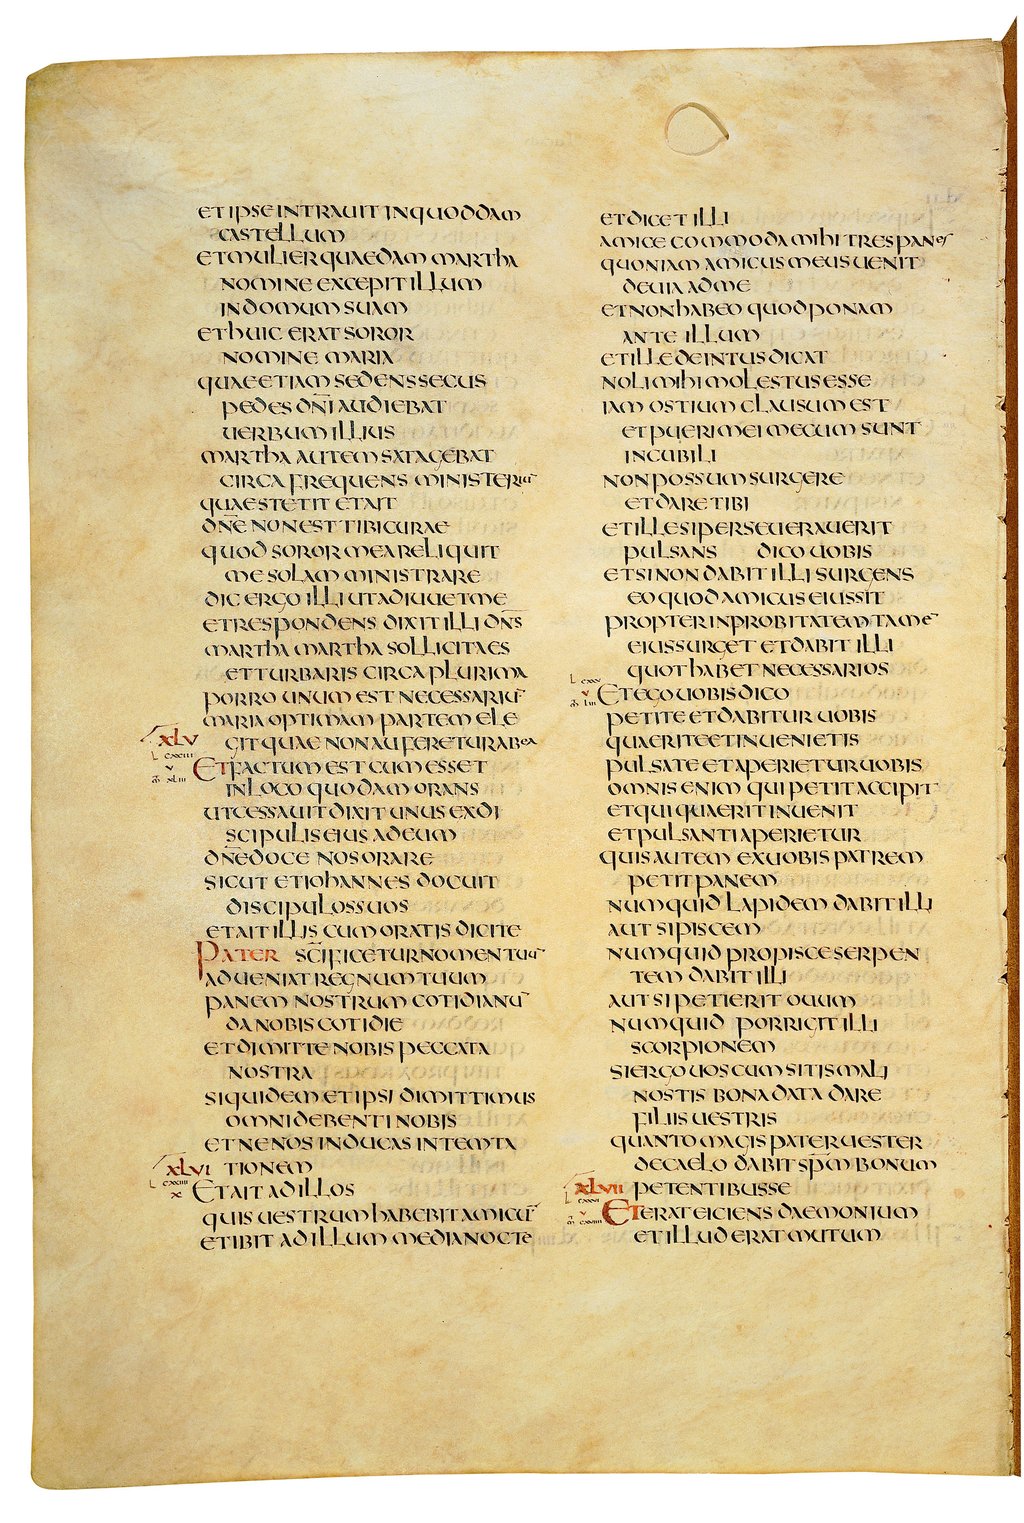 ET IPSE INTRAUIT IN QUODDAM
CASTELLUM
ET MULIER QUAEDAM MARTHA
NOMINE EXCEPIT ILLUM
IN DOMUM SUAM
ET HUIC ERAT SOROR
NOMINE MARIA
QUAE ETIAM SEDENS SECUS
PEDES DN̅I AUDIEBAT
UERBUM ILLIUS
MARTHA AUTEM SATAGEBAT
CIRCA FREQUENS MINISTERIU̅
QUAE STETIT ET AIT
DN̅E NON EST TIBI CURAE
QUOD SOROR MEA RELIQUIT
ME SOLAM MINISTRARE
DIC ERGO ILLI UT ADIUUET ME
ET RESPONDENS DIXIT ILLI DN̅S
MARTHA MARTHA SOLLICITA ES
ET TURBARIS CIRCA PLURIMA
PORRO UNUM EST NECESSARIU̅
MARIA OPTIMAM PARTEM ELE
XLV GIT QUAE NON AUFERETUR AB EA
L CXXIII
V
ET FACTUM EST CUM ESSET
M̅ XLIII
IN LOCO QUODAM ORANS
UT CESSAUIT DIXIT UNUS EX DI
SCIPULIS EIUS AD EUM
DN̅E DOCE NOS ORARE
SICUT ET IOHANNES DOCUIT
DISCIPULOS SUOS
ET AIT ILLIS CUM ORATIS DICITE
PATER SC̅IFICETUR NOMEN TUU̅
ADUENIAT REGNUM TUUM
PANEM NOSTRUM COTIDIANU̅
DA NOBIS COTIDIE
ET DIMITTE NOBIS PECCATA
NOSTRA
SIQUIDEM ET IPSI DIMITTIMUS
OMNI DEBENTI NOBIS
ET NE NOS INDUCAS IN TEMTA
XLVI TIONEM
L CXXIIII
X ET AIT AD ILLOS
QUIS UESTRUM HABEBIT AMICU̅
ET IBIT AD ILLUM MEDIA NOCTE
ET DICET ILLI
AMICE COMMODA MIHI TRES PANES
QUONIAM AMICUS MEUS UENIT
DE UIA AD ME
ET NON HABEO QUOD PONAM
ANTE ILLUM
ET ILLE DE INTUS DICAT
NOLI MIHI MOLESTUS ESSE
IAM OSTIUM CLAUSUM EST
ET PUERI MEI MECUM SUNT
IN CUBILI
NON POSSUM SURGERE
ET DARE TIBI
ET ILLE SI PERSEUERAUERIT
PULSANS DICO UOBIS
ET SI NON DABIT ILLI SURGENS
EO QUOD AMICUS EIUS SIT
PROPTER INPROBITATEM TAME̅
EIUS SURGET ET DABIT ILLI
QUOT HABET NECESSARIOS
L CXXV
V ET EGO UOBIS DICO
M̅ LIII
PETITE ET DABITUR UOBIS
QUAERITE ET INUENIETIS
PULSATE ET APERIETUR UOBIS
OMNIS ENIM QUI PETIT ACCIPIT
ET QUI QUAERIT INUENIT
ET PULSANTI APERIETUR
QUIS AUTEM EX UOBIS PATREM
PETIT PANEM
NUMQUID LAPIDEM DABIT ILLI
AUT SI PISCEM
NUMQUID PRO PISCE SERPEN
TEM DABIT ILLI
AUT SI PETIERIT OUUM
NUMQUID PORRIGIT ILLI
SCORPIONEM
SI ERGO UOS CUM SITIS MALI
NOSTIS BONA DATA DARE
FILIIS UESTRIS
QUANTO MAGIS PATER UESTER
DE CAELO DABIT SP̅M BONUM
XLVII PETENTIBUS SE
L CXXVI
V ET ERAT EICIENS DAEMONIUM
ET ILLUD ERAT MUTUM